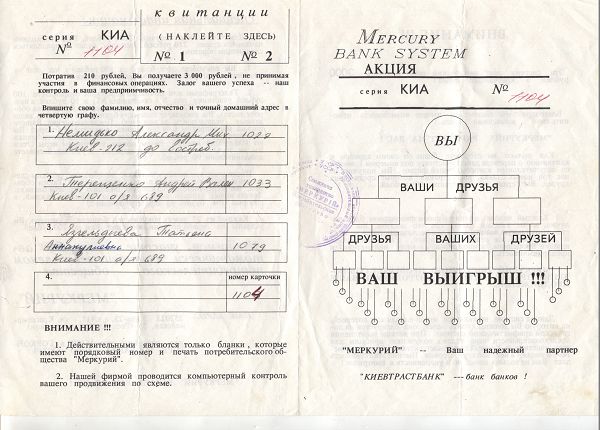 серия КИА
№ 1104
квитанции
(НАКЛЕЙТЕ ЗДЕСЬ)
№ 1 № 2
Потратив 210 рублей, Вы получаете 3 000 рублей, не принимая
участия в финансовых операциях. Залог вашего успеха -- наш
контроль и ваша предприимчивость.
Впишите свою фамилию, имя, отчество и точный домашний адрес в
четвертую графу.
1. Александр 1029
Киев-212 до востреб.
2. Терещенко Андрей Вален 1033
Киев-101 а/я 689
3. Татьяна
1079
Киев-101 а/я 689
4. номер карточки
1104
ВНИМАНИЕ !!!
1. Действительными являются только бланки, которые
имеют порядковый номер и печать потребительского об-
щества "Меркурий".
2. Нашей фирмой проводится компьютерный контроль
вашего продвижения по схеме.
MERCURY
BANK SYSTEM
АКЦИЯ
серия КИА № 1104
ВЫ
ВАШИ ДРУЗЬЯ
ДРУЗЬЯ ВАШИХ ДРУЗЕЙ
ВАШ ВЫИГРЫШ !!!
"МЕРКУРИЙ" -- Ваш надежный партнер
"КИЕВТРАСТБАНК" ---банк банков !